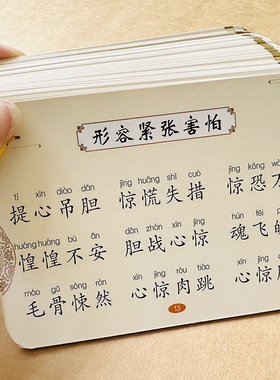 形容紧张害怕
tí xīn diào dǎn jīng huāng shī cuò jīng kǒng
提心吊胆 惊慌失措 惊恐
huáng huáng bù ān dǎn zhàn xīn jīng hún fēi
惶惶不安 胆战心惊 魂飞
máo gǔ sǒng rán xīn jīng ròu tiào xīn jīng
毛骨悚然 心惊肉跳 心惊
13